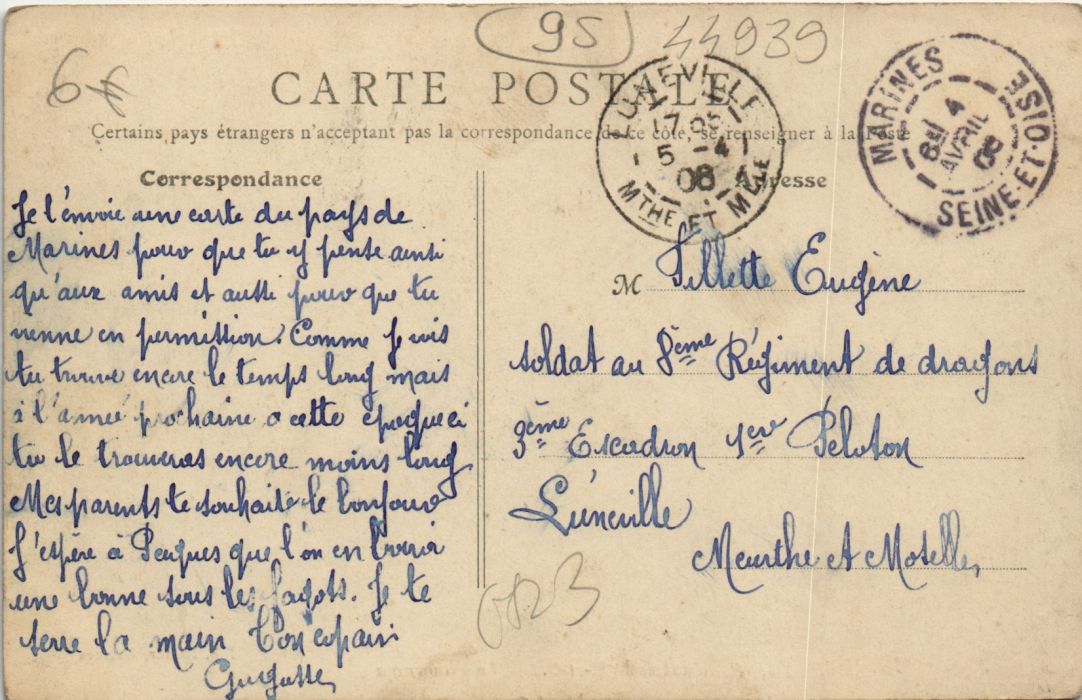 6€
95
44939
CARTE POSTALE
Certains pays étrangers n'acceptant pas la correspondance de ce côté, se renseigner à la Poste
LUNEVILLE
17 05
5 - 4
08
MTHE ET MLLE
MARINES
8M 4
AVRIL
08
SEINE-ET-OISE
Correspondance
Je t'envoie une carte du pays de
Marines pour que tu y pense ainsi
qu'aux amis et aussi pour que tu
vienne en permission. Comme je vois
tu trouve encore le temps long mais
à l'année prochaine a cette epoque ci
tu le trouveras encore moins long
Mes parents te souhaite le bonjour
J'espère à Paques que l'on en boira
une bonne sous les fagots. Je te
serre la main Ton copain
Gugusse
Adresse
M Fillette Eugène
soldat au 8ème Régiment de dragons
3ème Escadron 1er Peloton
Lunéville
Meurthe et Moselle